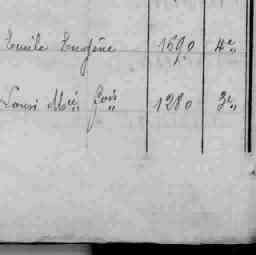 Emile Eugène 1690 4e
Louis Mié Jos 1280 3e